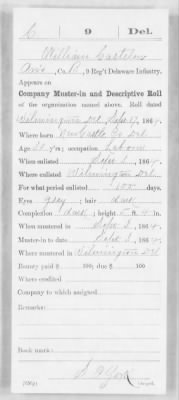 C | 9 | Del.
William Castelow
Co. B, 9 Reg't Delaware Infantry.
Appears on
Company Muster-in and Descriptive Roll
of the organization named above. Roll dated
Wilmington Del Sept 17, 1864.
Where born New Castle Co Del
Age yr's; occupation Laborer
When enlisted Sept 2, 1864.
Where enlisted Wilmington Del.
For what period enlisted 100 days.
Eyes gray; hair dark
Complexion dark; height 5 ft. 4 in.
When mustered in Sept 2, 1864.
Muster-in to date Sept 2, 1864.
Where mustered in Wilmington Del
Bounty paid $ 100; due $ 100
Where credited
Company to which assigned
Remarks:
Book mark:
Copyist.